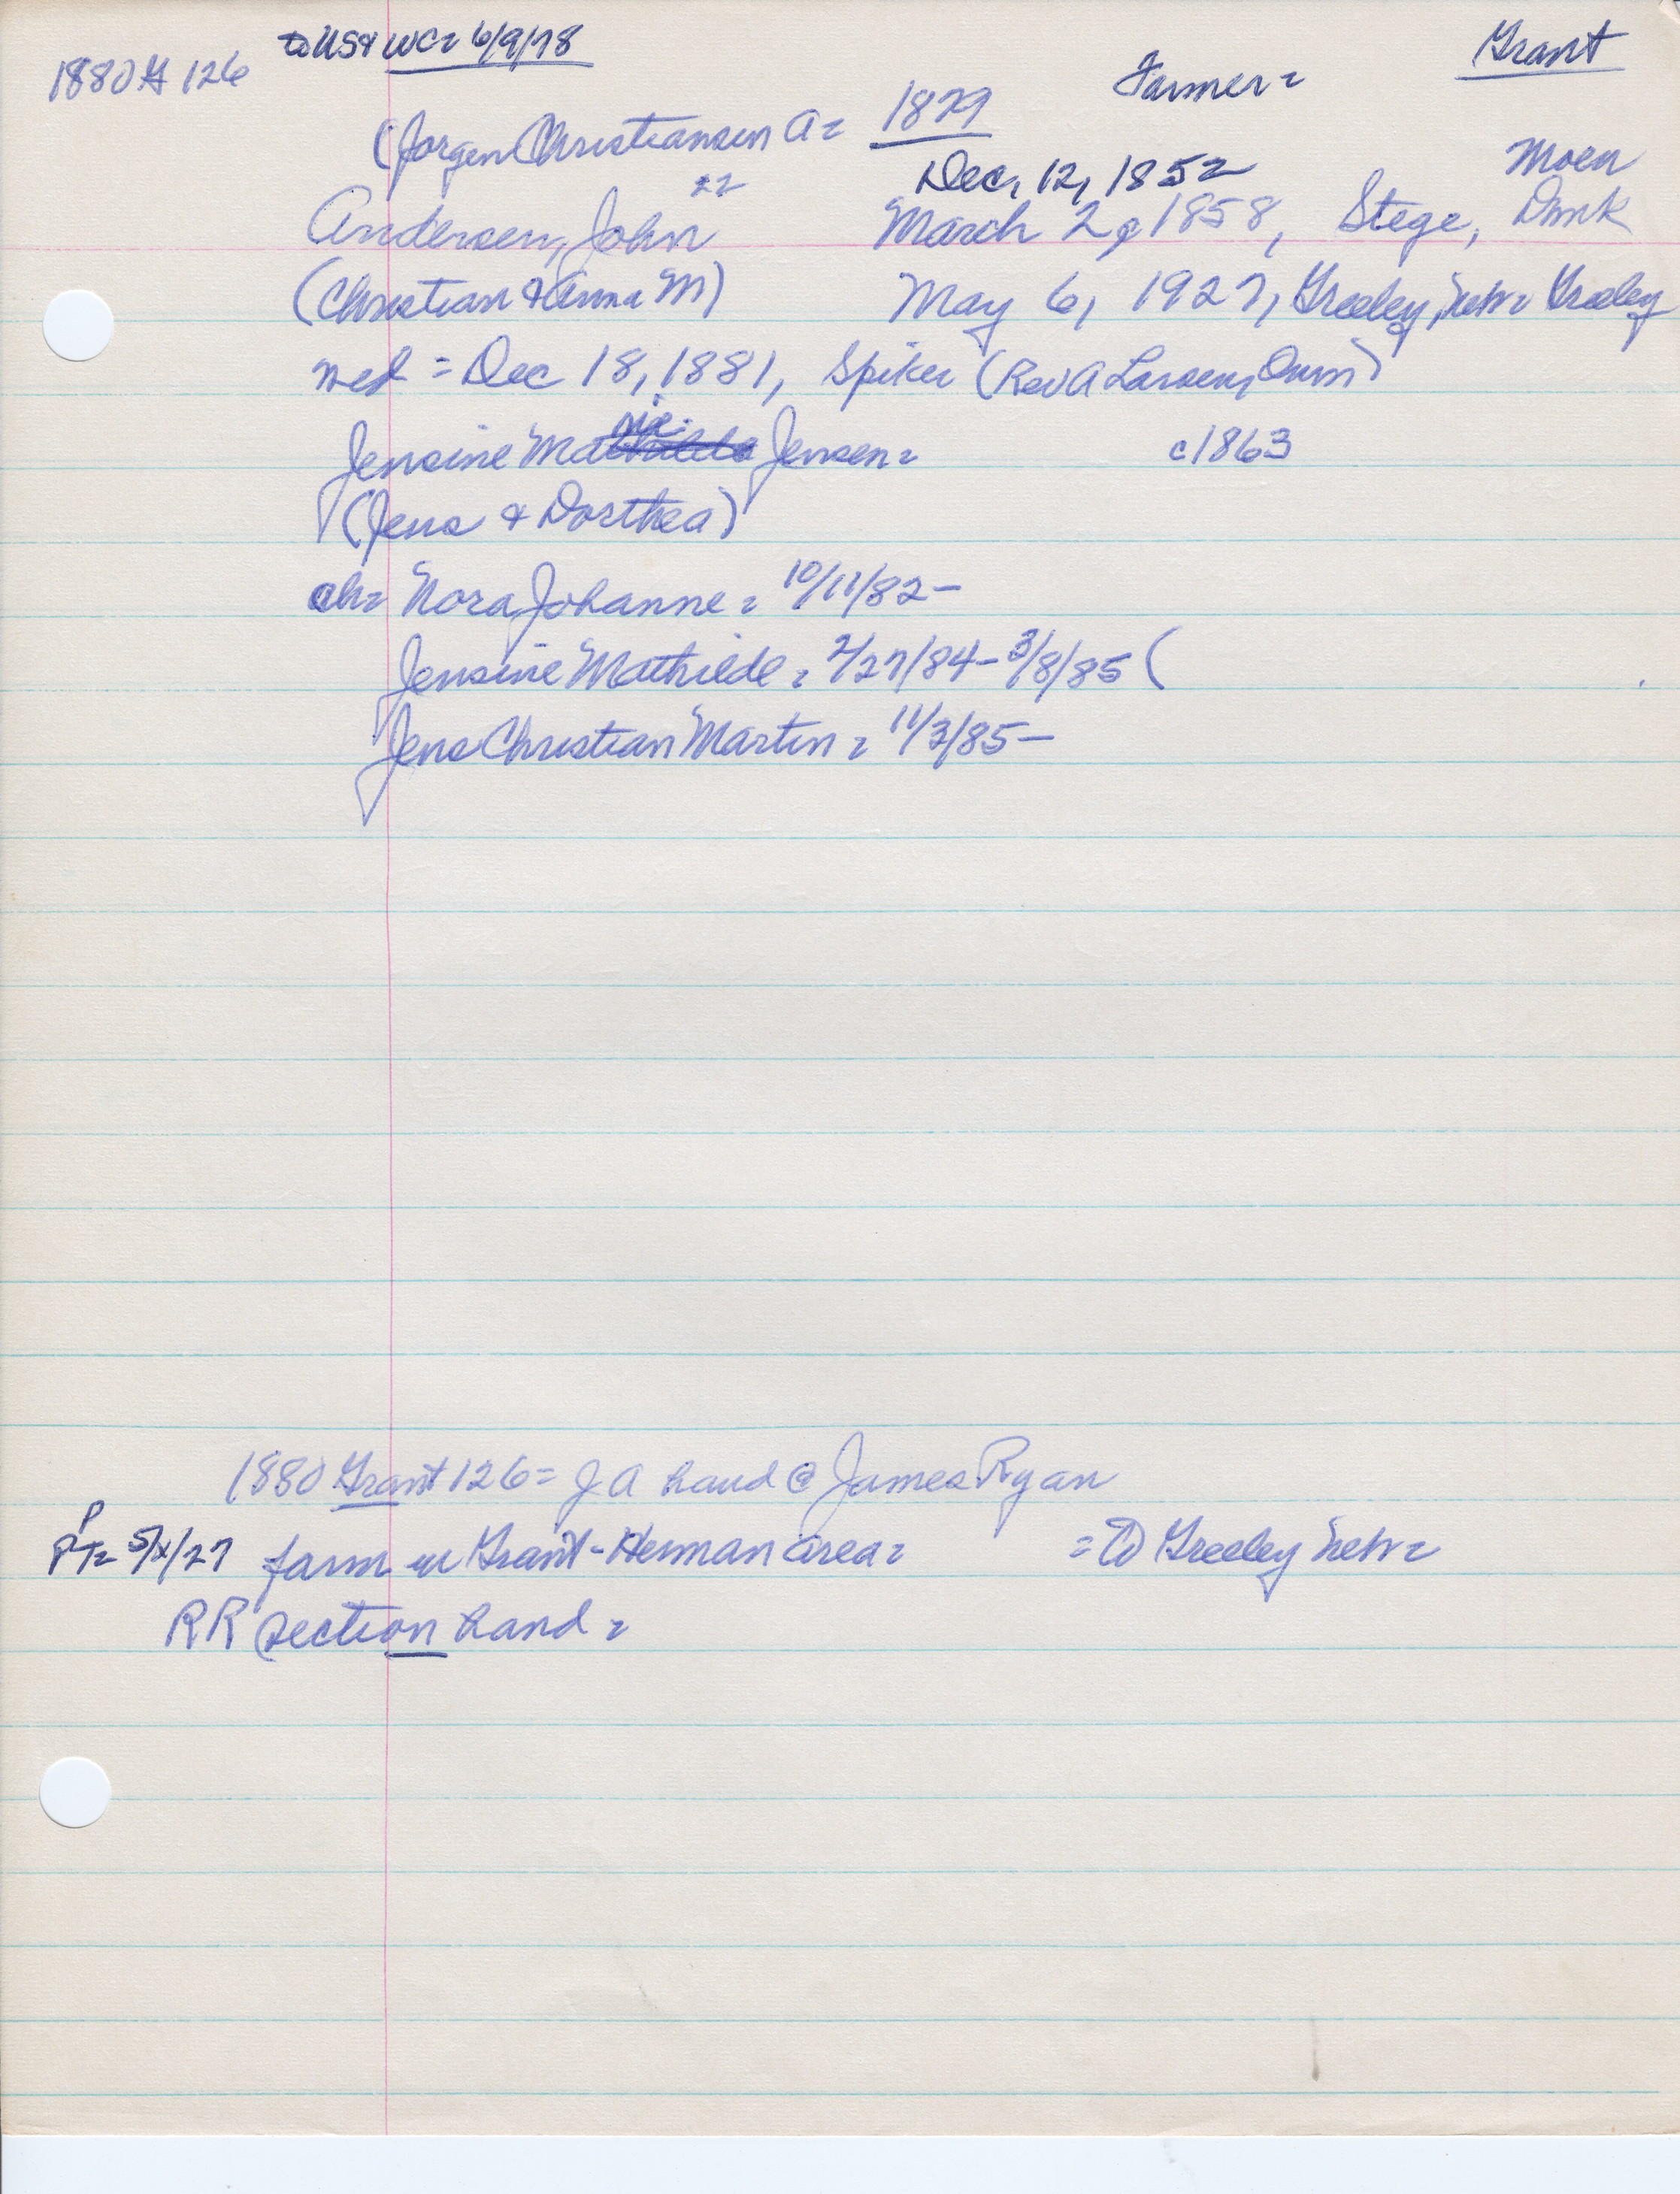 to US & WC= 6/9/78 Grant
1880 G 126 Farmer=
(Jorgen Christiansen A= 1879
Dec, 12, 1852 Moen
Andersen, John 22 March 2, 1858, Stege, Dmk
(Christian & Anna M) May 6, 1927, Greeley, Neb= Greeley
wed = Dec 18, 1881, Spiker (Rev A Larsen, Omm)
Jensine Matilde Jensen= c1863
(Jens & Dorthea)
ch= Nora Johanne= 10/11/82-
Jensine Mathilde= 2/27/84-3/8/85 (
Jens Christian Martin= 11/3/85-
1880 Grant 126= J A hand @ James Ryan
PT= 5/x/27 farm in Grant-Herman area= =D Greeley Neb=
RR section hand=